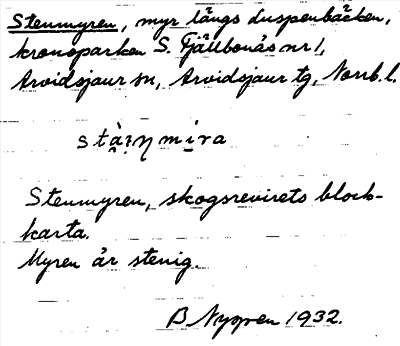 Stenmyren, myr längs Luspenbäcken,
kronoparken S. Fjällbonäs nr 1,
Arvidsjaur sn, Arvidsjaur tg, Norrb. l.
stà̯i̯ŋmi̱ra
Stenmyren, skogsrevirets block-
karta.
Myren är stenig.
B Nygren 1932.